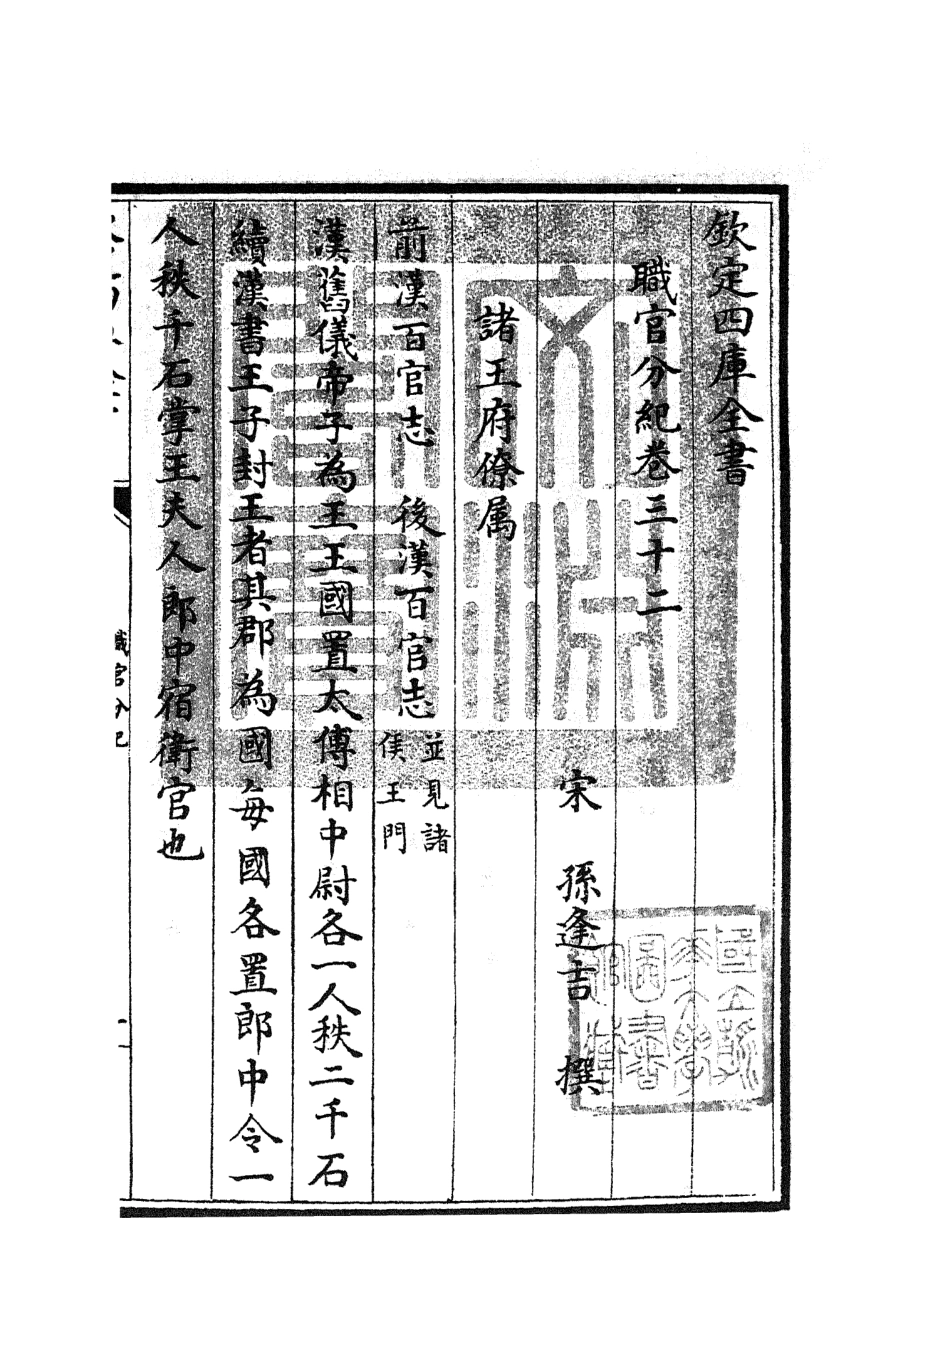 欽定四庫全書
職官分紀卷三十二
宋 孫逢吉 撰
諸王府僚属
前漢百官志 後漢百官志 並見諸
侯王門
漢舊儀帝子為王王國置太傅相中尉各一人秩二千石
續漢書王子封王者其郡為國每國各置郎中令一
人秩千石掌王夫人郎中宿衛官也
職官分紀